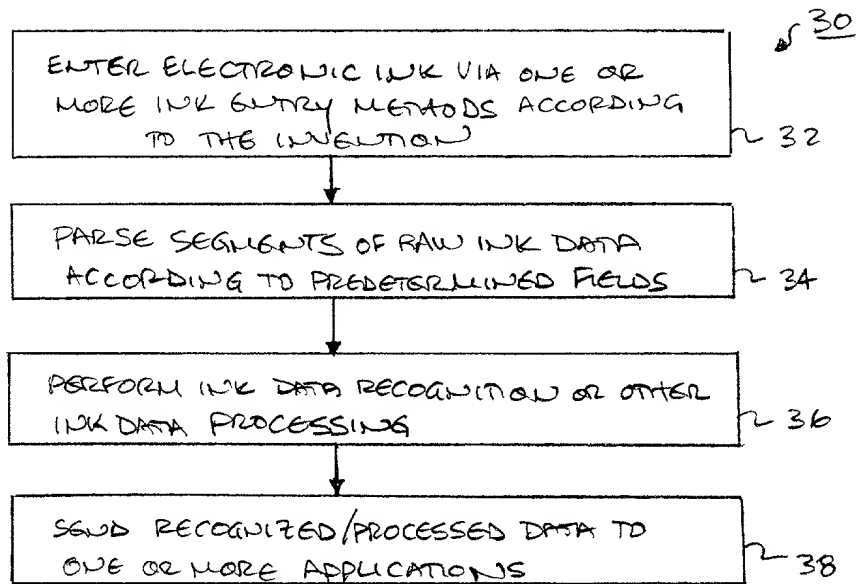 30
ENTER ELECTRONIC INK VIA ONE OR
MORE INK ENTRY METHODS ACCORDING
TO THE INVENTION
32
PARSE SEGMENTS OF RAW INK DATA
ACCORDING TO PREDETERMINED FIELDS
34
PERFORM INK DATA RECOGNITION OR OTHER
INK DATA PROCESSING
36
SEND RECOGNIZED/PROCESSED DATA TO
ONE OR MORE APPLICATIONS
38